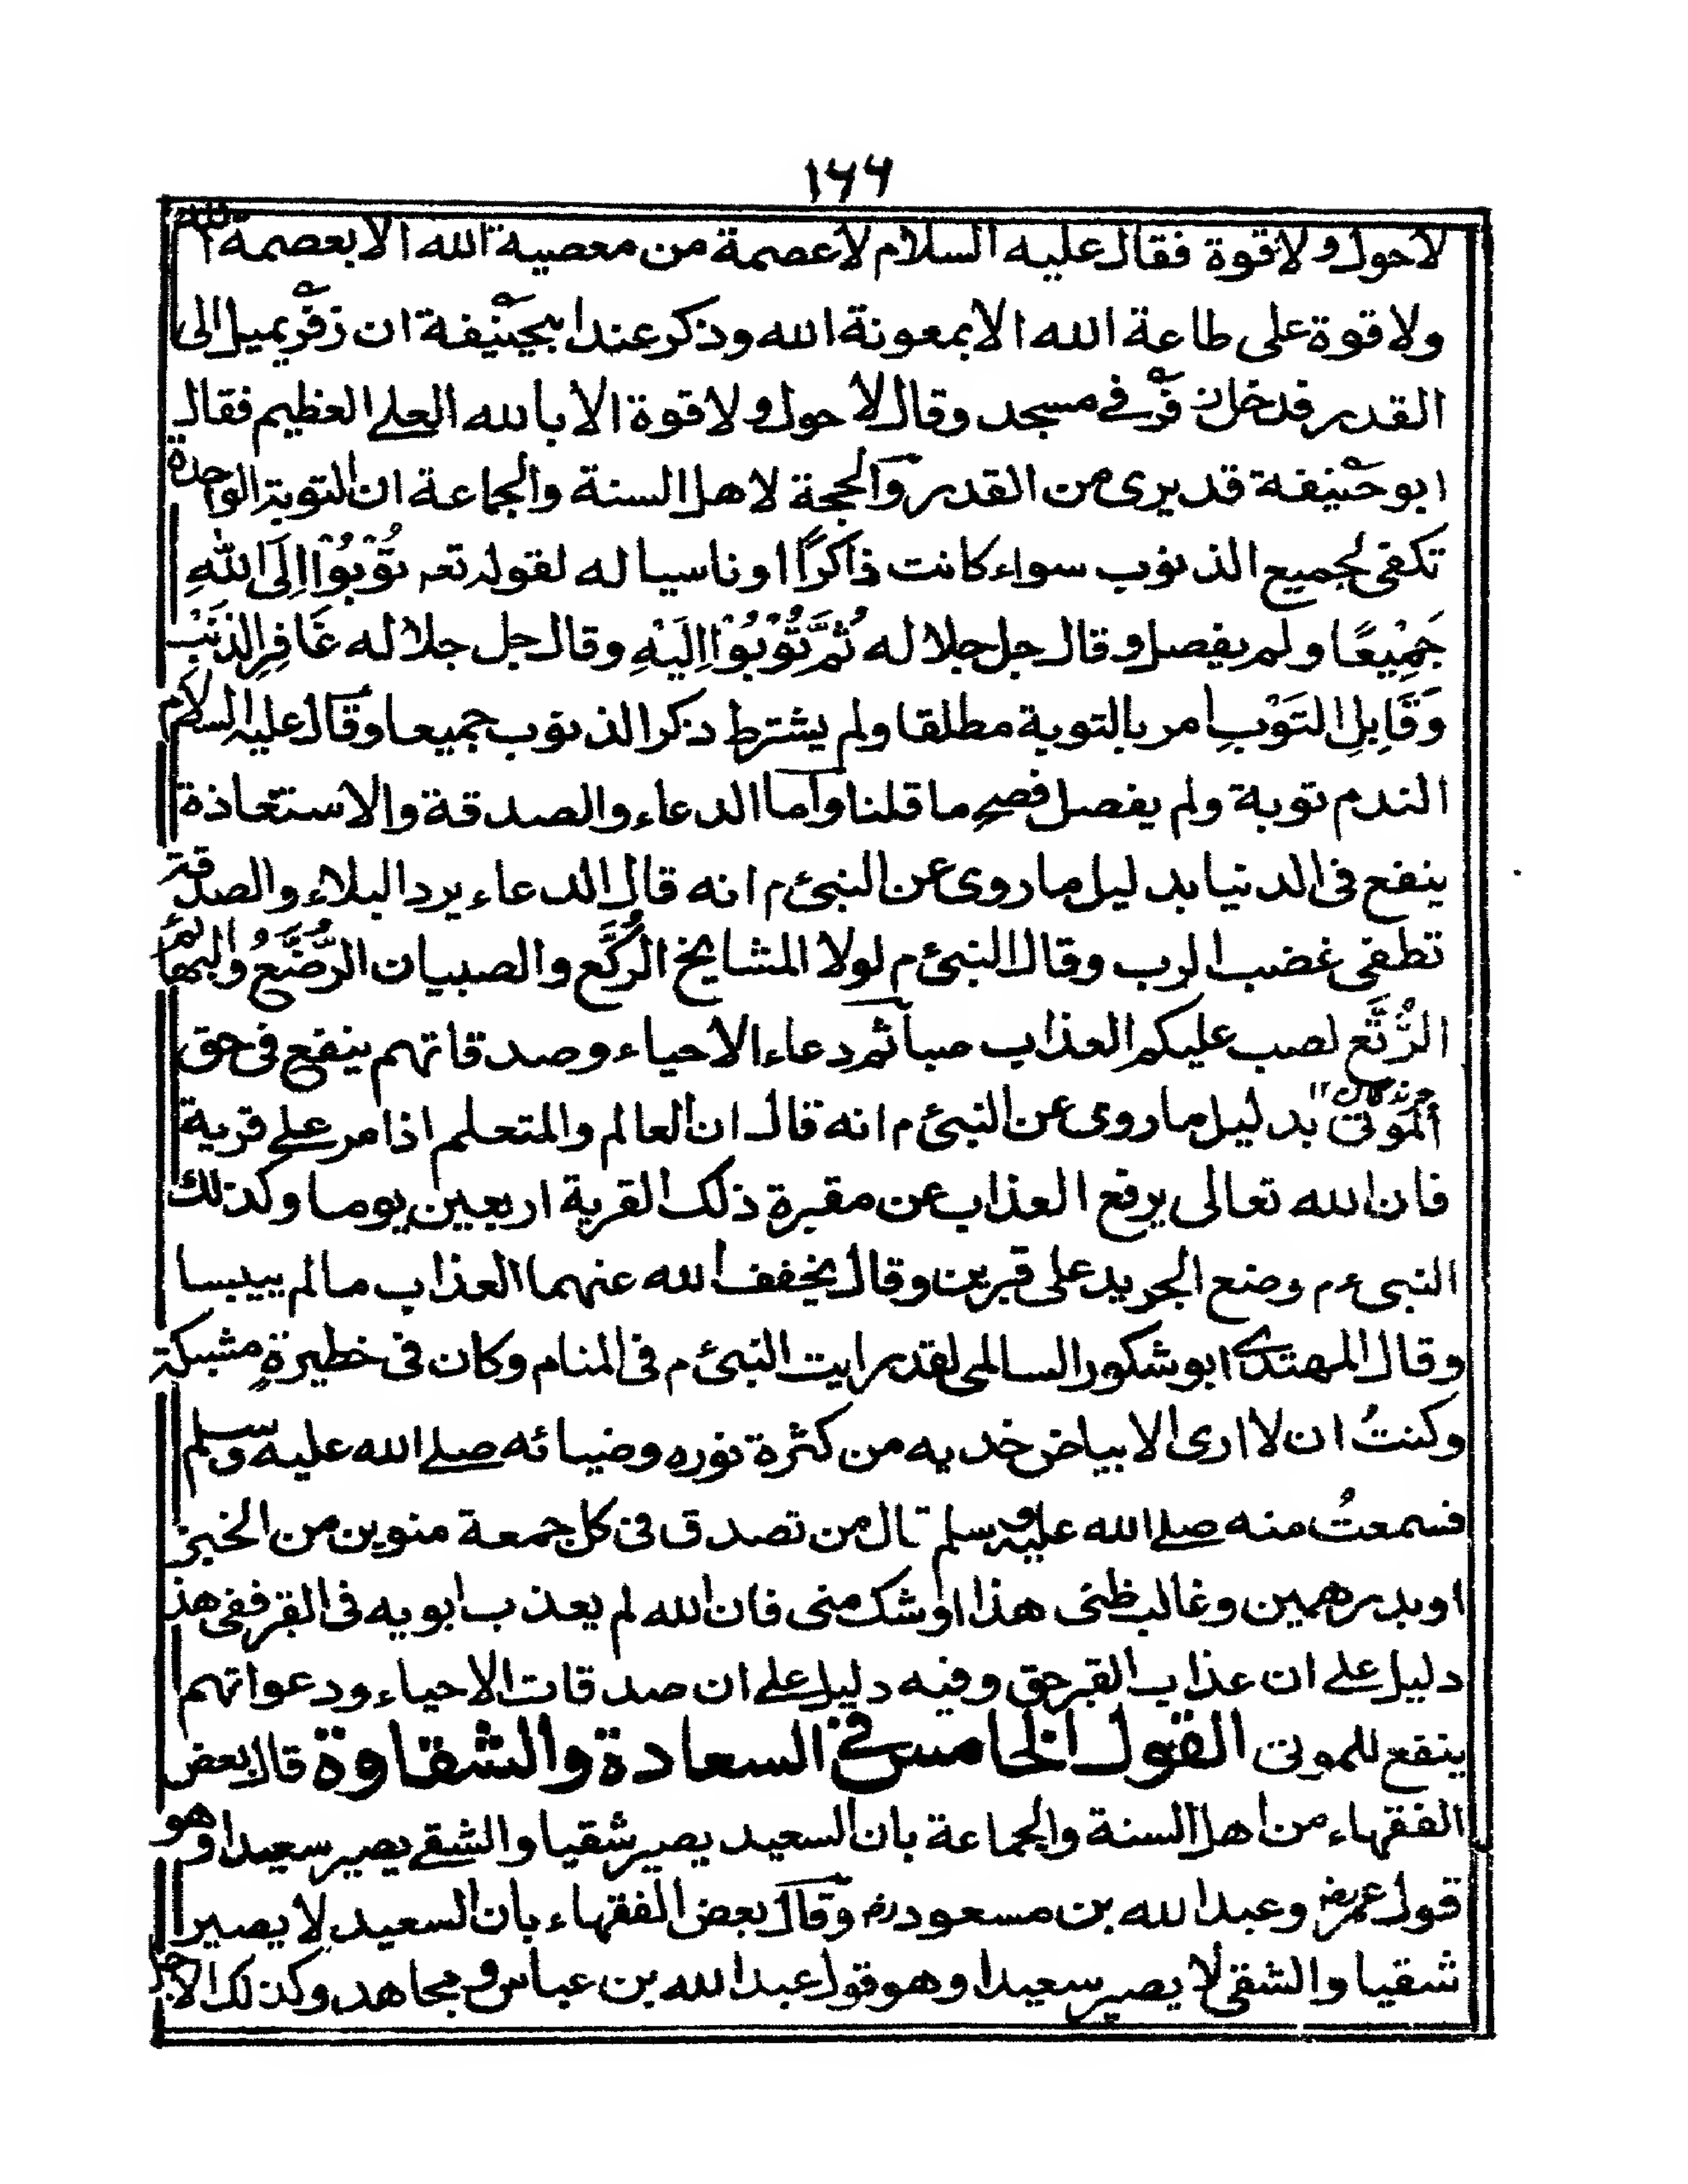 ۱۶۶
لاحول ولاقوة فقال عليه السلام لاعصمة من معصية الله الابعصمة الله
ولاقوة على طاعة الله الابمعونة الله وذكر عند ابيحنيفة ان زفر يميل الى
القدر فدخل زفر في مسجد وقال لاحول ولاقوة الابالله العلے العظيم فقال
ابوحنيفة قد يرى من القدر والحجة لاهل السنة والجماعة ان التوبة الواحدة
تكفى لجميع الذنوب سواء كانت ذاكرًا اوناسيا له لقوله تعہ تُوْبُوْا اِلَى اللّٰهِ
جَمِيْعًا ولم يفصل وقال جل جلاله ثُمَّ تُوْبُوْا اِلَيْهِ وقال جل جلاله غَافِرِ الذَنْبِ
وَقَابِلِ التَوْبِ امر بالتوبة مطلقا ولم يشترط ذكر الذنوب جميعا وقال عليه السلام
الندم توبة ولم يفصل فصح ما قلنا واما الدعاء والصدقة والاستعاذة
ينفع فى الدنيا بدليل ماروى عن النبىء م انه قال الدعاء يرد البلاء والصدقة
تطفى غضب الرب وقال النبىء م لولا المشايخ الرُكَّع والصبيان الرُّضَّعُ والبهائم
الرُتَّع لصب عليكم العذاب صبا ثم دعاء الاحياء وصدقاتهم ينفع فى حق
الموتى بدليل ماروى عن النبىء م انه قال ان العالم والمتعلم اذا مر علے قرية
فان الله تعالى يرفع العذاب عن مقبرة ذلك القرية اربعين يوما وكذلك
النبىء م وضع الجريد على قبرين وقال يخفف الله عنهما العذاب مالم ييبسا
وقال المهتدے ابوشكور السالمى لقد رايت النبىء م فى المنام وكان فى خطيرةٍ مشبكة
وكنتُ ان لاارى الابياض خديه من كثرة نوره وضيائه صلے الله عليه وسلم
فسمعتُ منه صلے الله عليه وسلم قال من تصدق فى كل جمعة منوين من الخبز
اوبدرهمين وغالب ظنى هذا اوشك منى فان الله لم يعذب ابويه فى القبر ففى هذ
دليل علے ان عذاب القبر حق وفيه دليل علے ان صدقات الاحياء ودعواتهم
ينفع للموتى القول الخامس فى السعادة والشقاوة قال بعض
الفقهاء من اهل السنة والجماعة بان السعيد يصير شقيا والشقے يصير سعيدا وهو
قول عمر رض وعبد الله بن مسعود رض وقال بعض الفقهاء بان السعيد لا يصير
شقيا والشقى لا يصير سعيدا وهو قول عبد الله بن عباس و مجاهد وكذلك الاجل